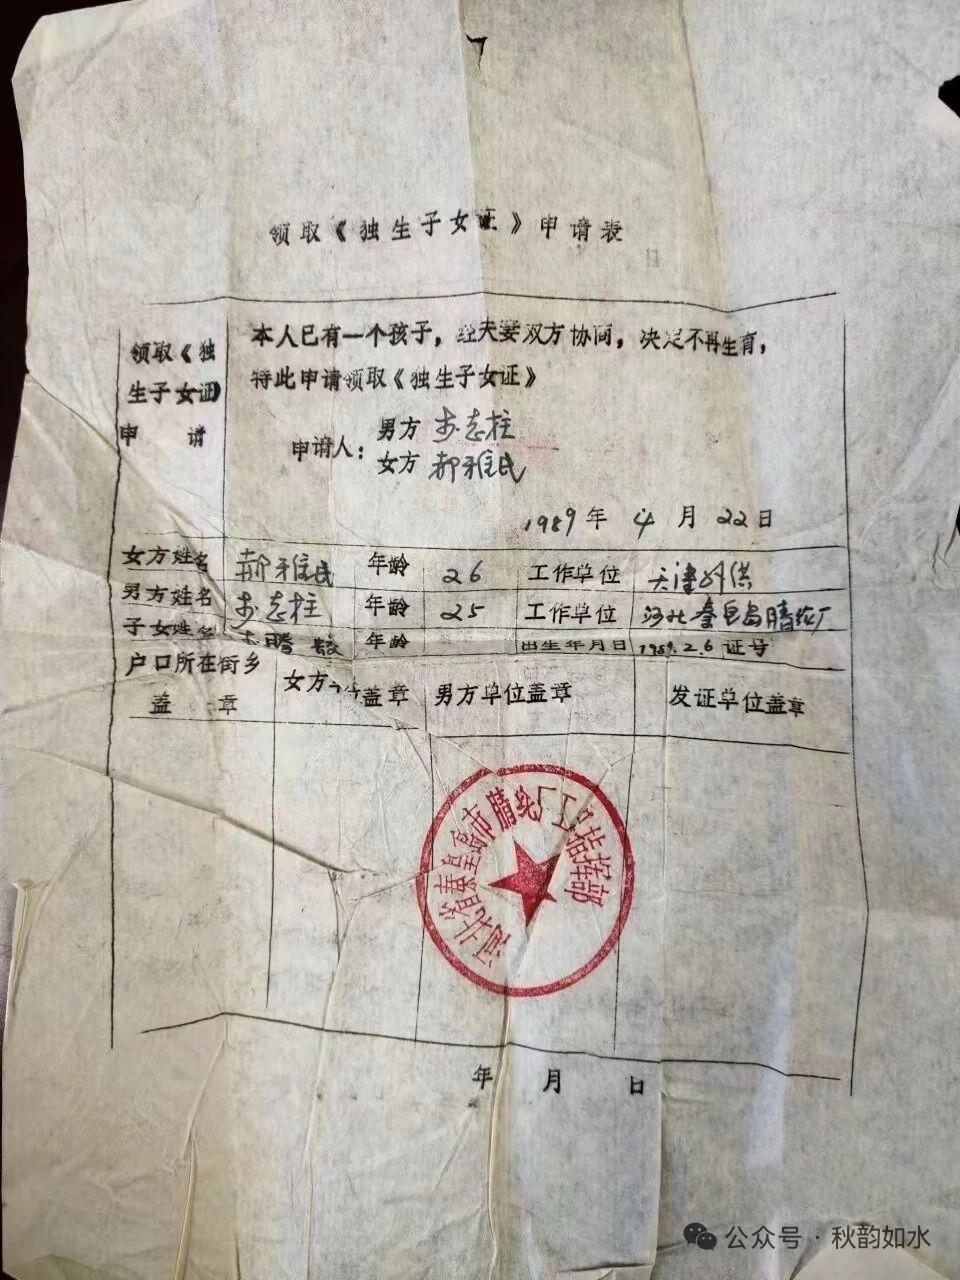 领取《独生子女证》申请表
领取《独
生子女证》
申 请
本人已有一个孩子，经夫妻双方协同，决定不再生育，
特此申请领取《独生子女证》
申请人：
男方 步志柱
女方 郝雅民
1989年 4月 22日
女方姓名 郝雅民 年龄 26 工作单位 天津外供
男方姓名 步志柱 年龄 25 工作单位 河北秦皇岛腈纶厂
子女姓名 年龄 出生年月日 1989.2.6 证号
户口所在街乡
盖 章
女方 盖章 男方单位盖章 发证单位盖章
河北省秦皇岛市腈纶厂工程指挥部
年 月 日
公众号·秋韵如水